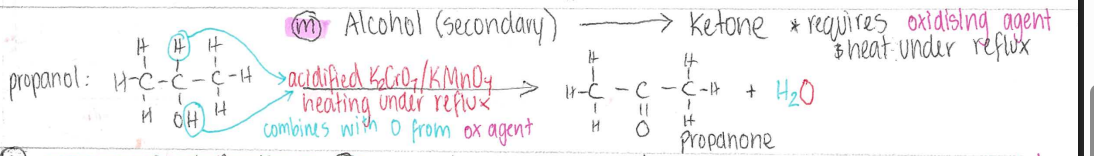 (m) Alcohol (secondary) ⟶ Ketone * requires oxidising agent
& heat under reflux
propanol:
H H H
H-C-C-C-H
H OH H
acidified K₂CrO₇/KMnO₄
heating under reflux
combines with O from ox agent
H H
H-C-C-C-H + H₂O
H O H
propanone